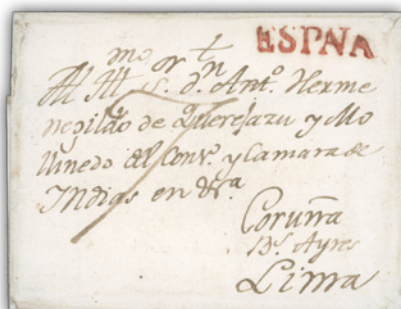 ESPNA
Al Illmo Sor dn Anto. Herme
negildo de Querejazu y Mo
llinedo del Conso. y Camara de
Indias en
Coruña
Bs. Ayres
Lima